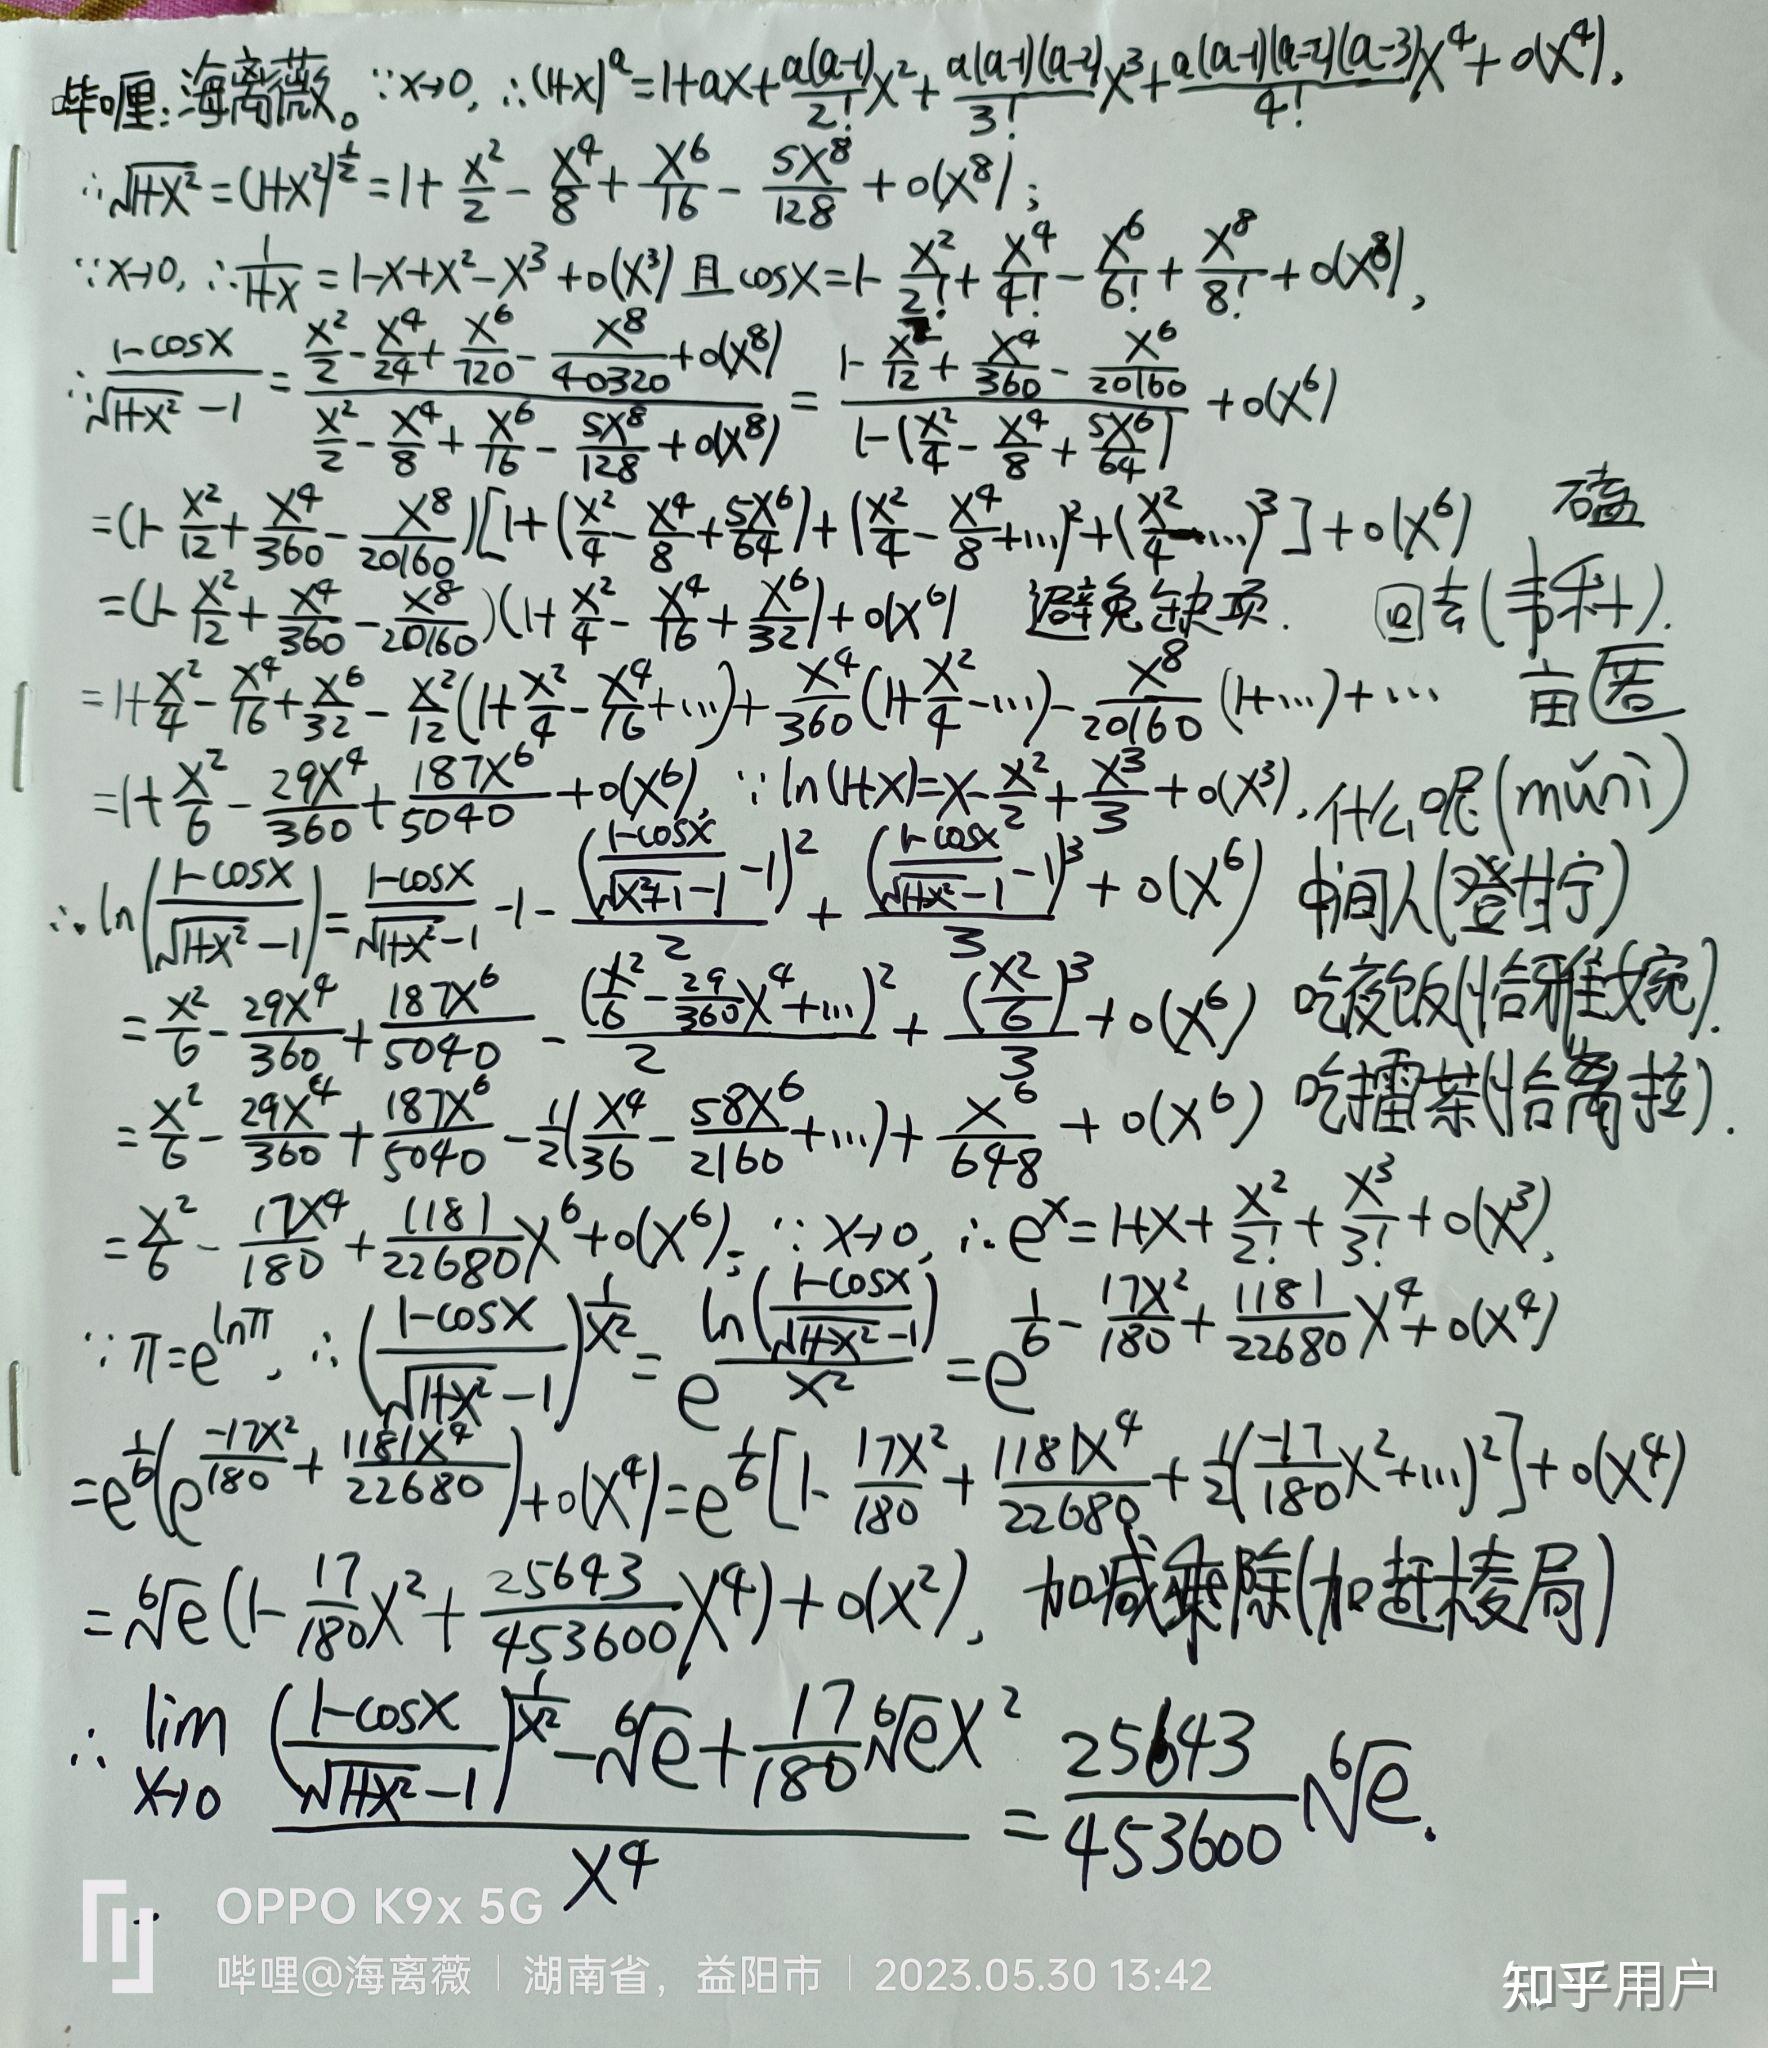 哔哩:海离薇。∵x→0, ∴(1+x)^a=1+ax+a(a-1)/2! x²+a(a-1)(a-2)/3! x³+a(a-1)(a-2)(a-3)/4! x⁴+o(x⁴).
∴√(1+x²)=(1+x²)^(1/2)=1+x²/2-x⁴/8+x⁶/16-5x⁸/128+o(x⁸);
∵x→0, ∴1/(1+x)=1-x+x²-x³+o(x³)且cosx=1-x²/2!+x⁴/4!-x⁶/6!+x⁸/8!+o(x⁸),
∴(1-cosx)/(√(1+x²)-1)=(x²/2-x⁴/24+x⁶/720-x⁸/40320+o(x⁸))/(x²/2-x⁴/8+x⁶/16-5x⁸/128+o(x⁸))=(1-x²/12+x⁴/360-x⁶/20160)/(1-(x²/4-x⁴/8+5x⁶/64))+o(x⁶)
=(1-x²/12+x⁴/360-x⁸/20160)[1+(x²/4-x⁴/8+5x⁶/64)+(x²/4-x⁴/8+...)²+(x²/4-...)³]+o(x⁶) 磕
=(1-x²/12+x⁴/360-x⁸/20160)(1+x²/4-x⁴/16+x⁶/32)+o(x⁶) 避免缺项. 回去(韦秆).
=1+x²/4-x⁴/16+x⁶/32-x²/12(1+x²/4-x⁴/16+...)+x⁴/360(1+x²/4-...)-x⁸/20160(1+...)+...
=1+x²/6-29x⁴/360+187x⁶/5040+o(x⁶), ∵ln(1+x)=x-x²/2+x³/3+o(x³). 什么呢(mǔnì)
∴ln((1-cosx)/(√(1+x²)-1))=(1-cosx)/(√(1+x²)-1)-1-((1-cosx)/(√(x²+1)-1)-1)²/2+((1-cosx)/(√(1+x²)-1)-1)³/3+o(x⁶) 中间人(登甘宁)
=x²/6-29x⁴/360+187x⁶/5040-(x²/6-29/360x⁴+...)²/2+(x²/6)³/3+o(x⁶) 吃夜饭(恰雅婉).
=x²/6-29x⁴/360+187x⁶/5040-1/2(x⁴/36-58x⁶/2160+...)+x⁶/648+o(x⁶) 吃擂茶(恰离拉).
=x²/6-17x⁴/180+1181/22680x⁶+o(x⁶); ∵x→0, ∴eˣ=1+x+x²/2!+x³/3!+o(x³),
∵π=e^(lnπ), ∴((1-cosx)/(√(1+x²)-1))^(1/x²)=e^(ln((1-cosx)/(√(1+x²)-1))/x²)=e^(1/6-17x²/180+1181/22680x⁴+o(x⁴))
=e^(1/6)(e^(-17x²/180+1181x⁴/22680))+o(x⁴)=e^(1/6)[1-17x²/180+1181x⁴/22680+1/2(-17/180x²+...)²]+o(x⁴)
=⁶√e(1-17/180x²+25643/453600x⁴)+o(x²), 加减乘除(加赶棱局)
∴lim x→0 (((1-cosx)/(√(1+x²)-1))^(1/x²)-⁶√e+17/180⁶√ex²)/x⁴=25643/453600⁶√e.
OPPO K9x 5G
哔哩@海离薇 | 湖南省，益阳市 | 2023.05.30 13:42
知乎用户